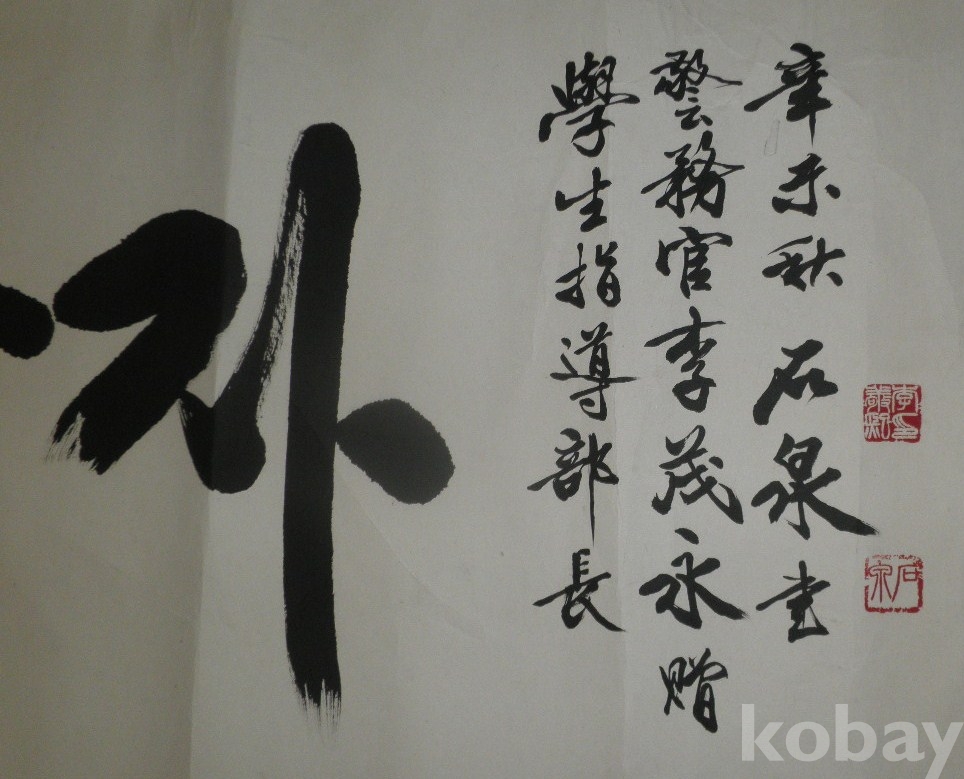 자
學生指導部長
警務官李茂永贈
辛未秋 石泉書
石泉
kobay